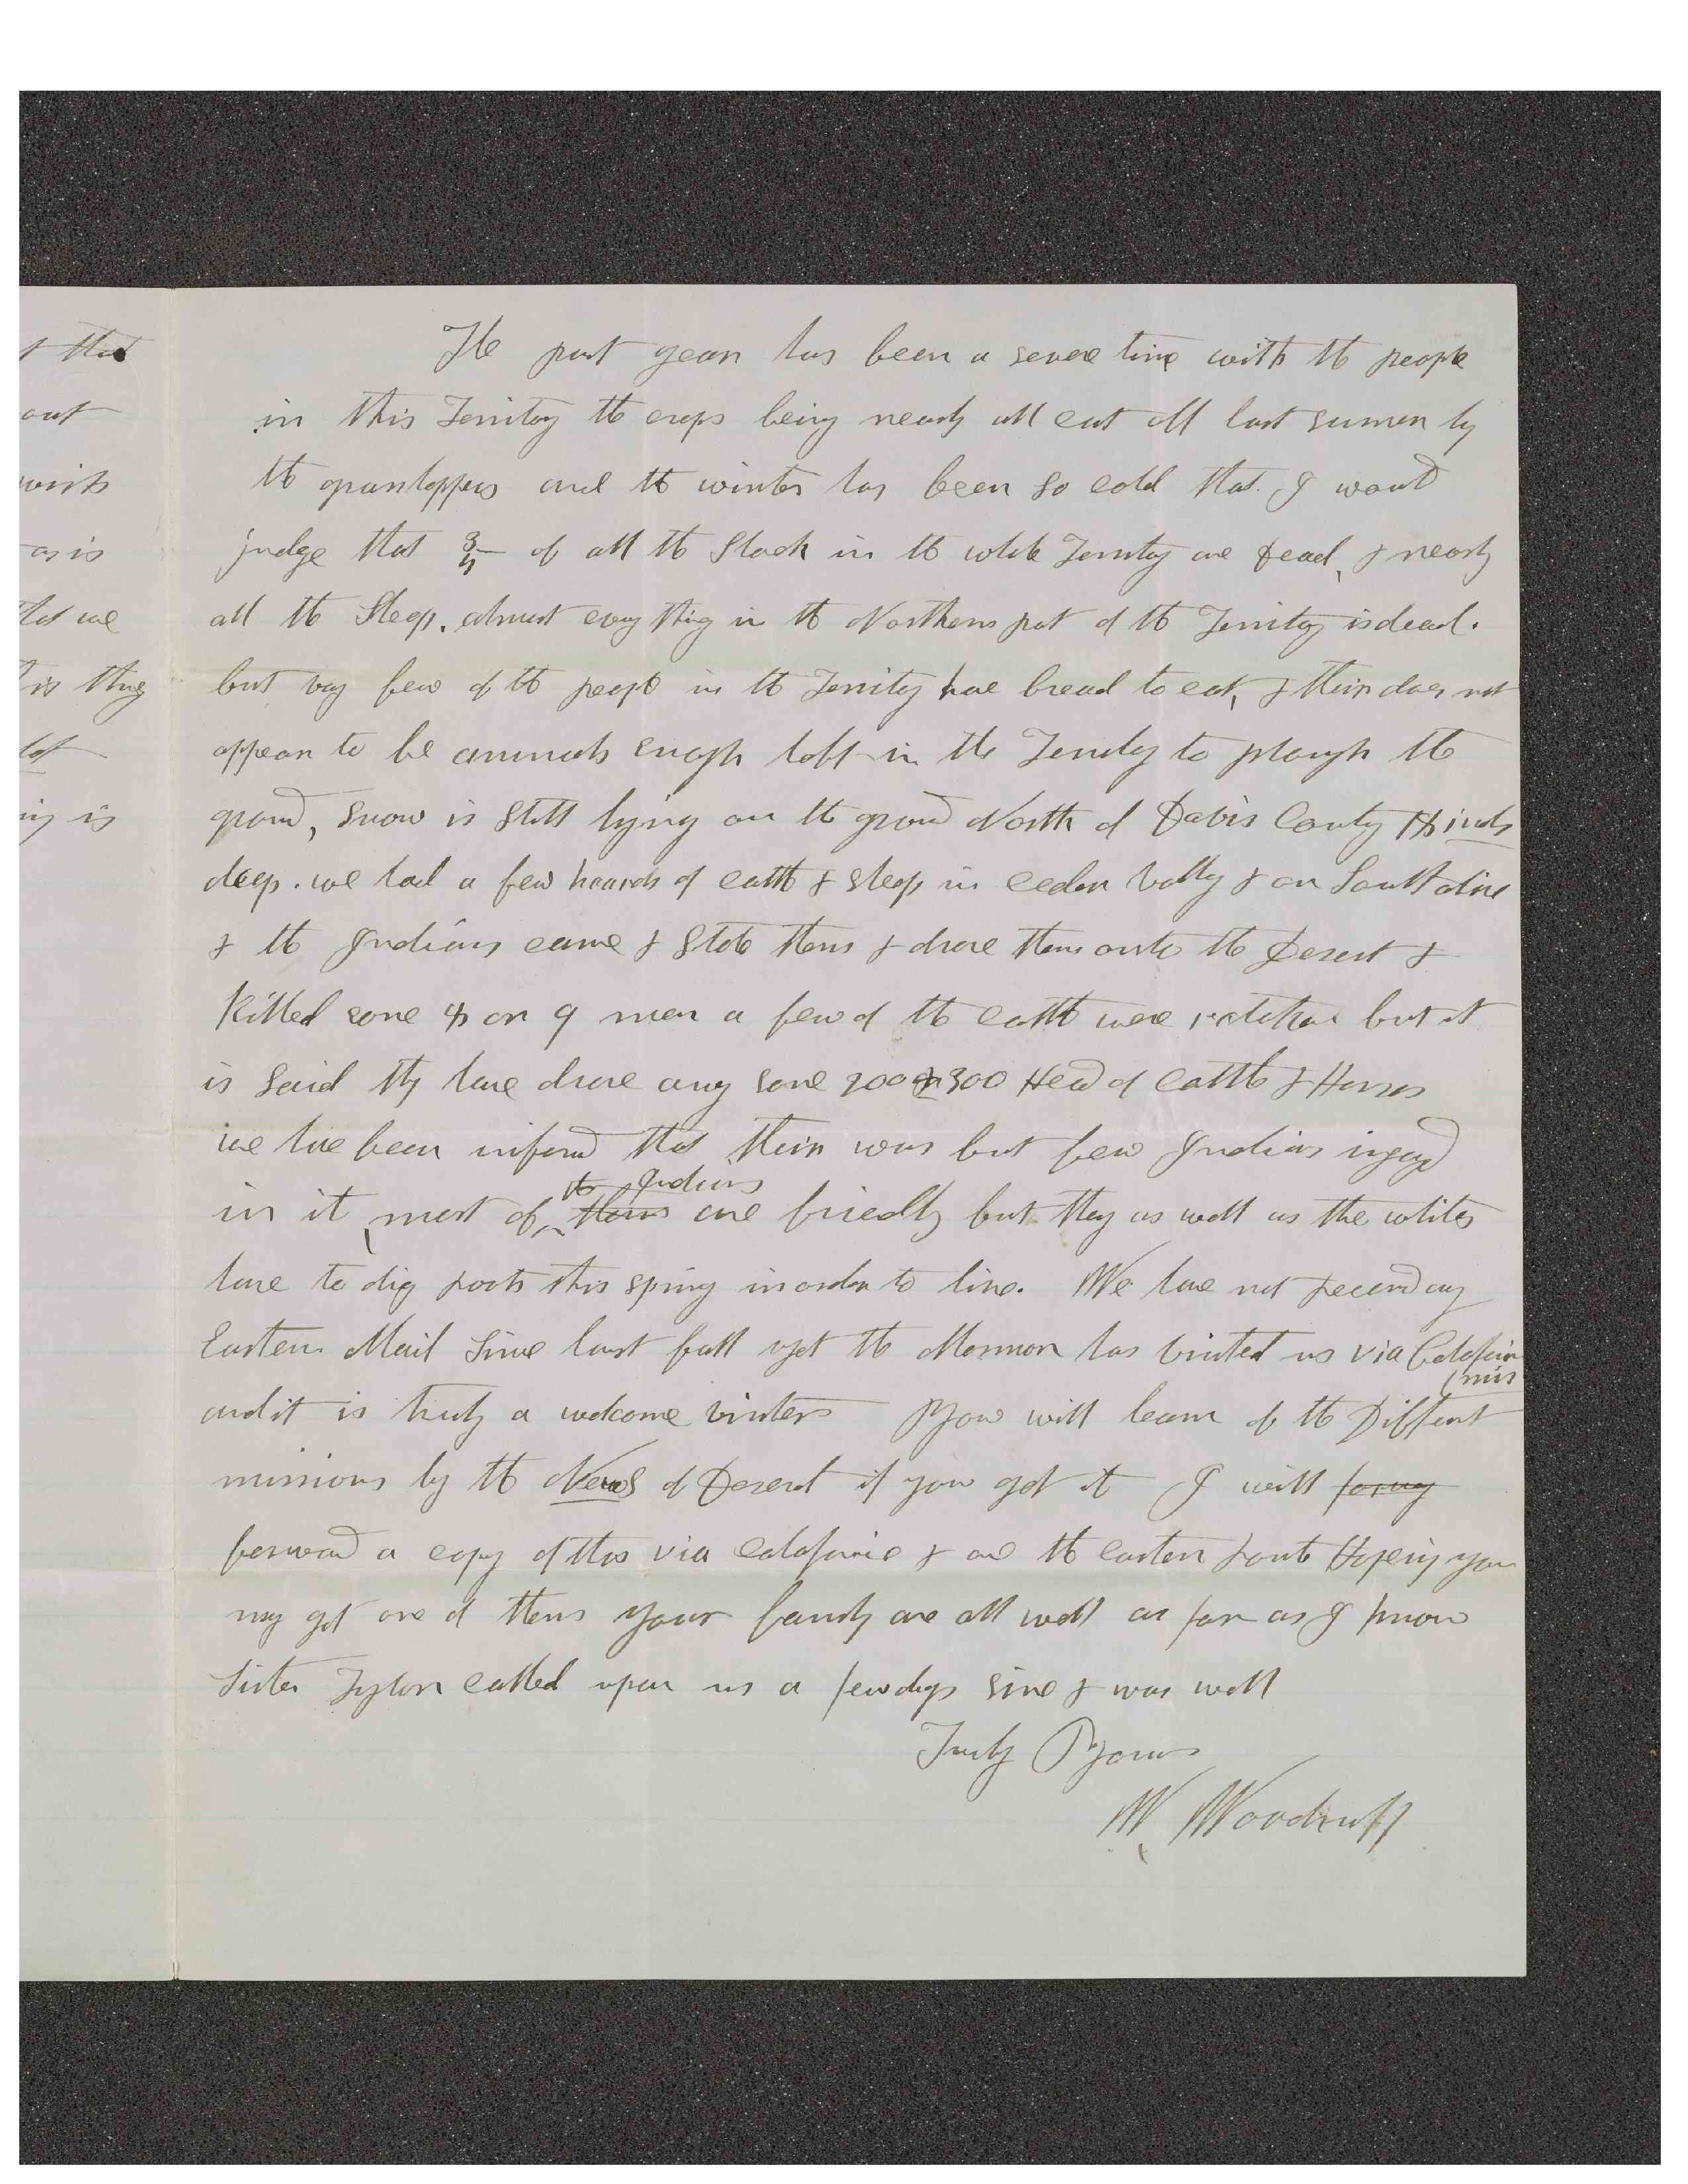 t that
out
wish
as is
that we
is thing
lot
ing is
The past year has been a severe time with the people
in this Territory the crops being nearly all eat off last sumer by
the grasshoppers and the winter has been so cold that I would
judge that 3/4 of all the Stock in the whole Territory are dead, & nearly
all the Sheep. almost evry thing in the Northern part of the Territory is dead.
but vary few of the people in the Territory have bread to eat, & their does not
appear to be animals enough left in the Territory to plough the
ground, snow is still lying on the ground North of Davis County 18 inches
deep. we had a few heards of cattle & sheep in Cedar Vally &
& the Indians came & stole them & drove them onto the Desert &
killed some 8 or 9 men a few of the cattle were retaken but it
is said they have drove away some 200 or 300 Head of cattle & Horses
we have been informed that their was but few Indians ingaged
the Indians
in it, most of them are friendly but they as well as the whites
have to dig roots this spring in order to live. We have not received any
Eastern Mail since last fall yet the Mormon has visited us via Califor
nia
and it is truly a welcome visiter You will learn of the Different
missions by the News of Deseret if you get it I will
forward a copy of this via Califonia & one the eastern route Hopeing you
may get one of them your family are all well as far as I know
Sister Taylor called upon us a few days since & was well
Truly Yours
W. Woodruff